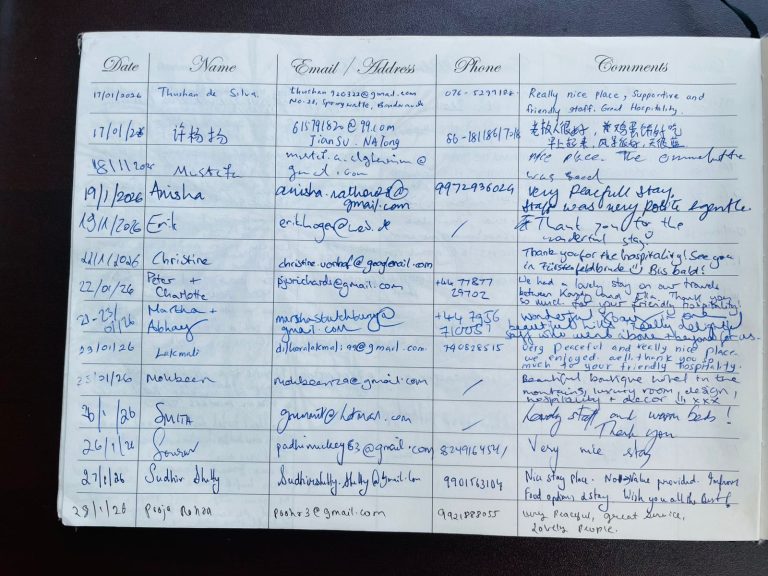 Date Name Email / Address Phone Comments
17/01/2026 Thushan de Silva. thushan920322@gmail.com 076-5297184 Really nice place, Supportive and
No. 28, friendly staff. Great Hospitality.
17/01/26 许杨扬 615791820@99.com 86-181186/7-18 老板人很好，
JianSU. NATong 早上起来，风景很好，天很蓝
18/1/2026 Mustafa nice place. The
gmail.com was good
19/1/2026 Anisha anisha.rathore28@ 9972936024 Very Peacefull stay,
gmail.com Staff was very polite & gentle.
19/1/2026 Erik / Thank you for the
wonderful stay
21/1/2026 Christine Thank you for the hospitality! See you
in Fürstenfeldbruck :) Bis bald!
22/01/26 Peter + pjorichards@gmail.com +44 77877 We had a lovely stay on our travels
Charlotte 29702 between Kandy and Ella. Thank you
so much for your friendly hospitality!
22-23/ Martha + +44 7956 Wonderful stay in
01/26 Abhay gmail.com 710057 beautiful hills. Really delightful
staff who went above & beyond for us.
23/01/26 Lakmali dilharalakmali99@gmail.com 740828515 Very Peceful and really nice place.
we enjoyed. well. thank you so
much to your friendly hospitality.
23/01/26 Mohbeen mohbeen29@gmail.com / Beautiful boutique hotel in the
mountains, luxury room, design,
hospitality + decor !! xxx
26/1/26 SMITA / Lovely staff and warm beds!
Thank you
26/1/26 Sourav padhimickey83@gmail.com 8249164541 Very nice stay
27/1/26 Sudhir Shetty Sudhirshetty.Shetty@Gmail.Com 9901563104 Nice stay place. provided. Improve
Food options & stay Wish you all the Best
28/1/26 Pooja Rohra poohr3@gmail.com 9921888055 Very Peaceful, great service,
Lovely People.